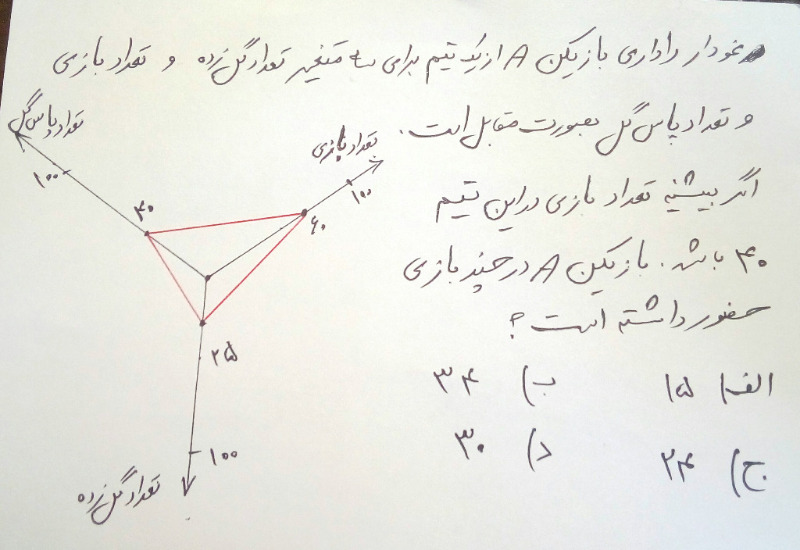 نمودار راداری بازیکن A از یک تیم برای سه متغیر تعداد گل زده و تعداد بازی
و تعداد پاس گل بصورت مقابل است.
اگر بیشینه تعداد بازی در این تیم
۴۰ باشد. بازیکن A در چند بازی
حضور داشته است؟
الف) ۱۵ ب) ۳۴
ج) ۲۴ د) ۳۰
تعداد پاس گل
۱۰۰
۴۰
تعداد بازی
۱۰۰
۶۰
۲۵
۱۰۰
تعداد گل زده